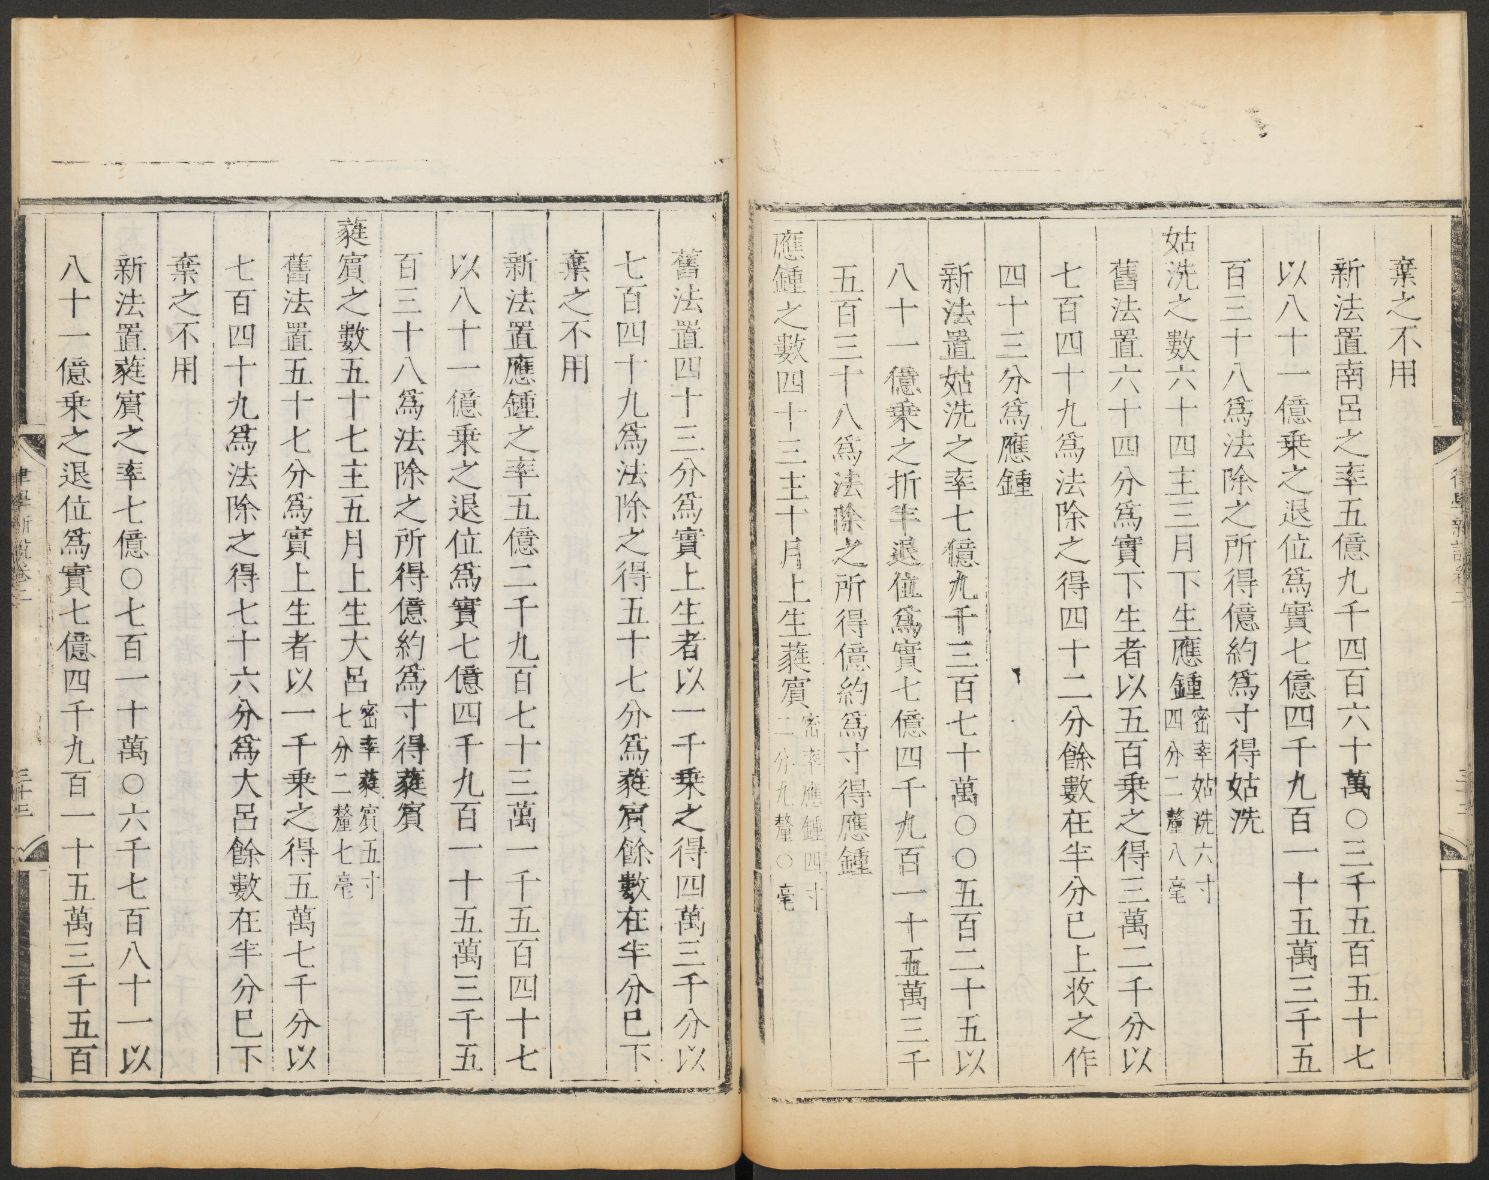 棄之不用
新法置南呂之率五億九千四百六十萬〇三千五百五十七
以八十一億乗之退位爲實七億四千九百一十五萬三千五
百三十八爲法除之所得億約爲寸得姑洗
姑洗之數六十四主三月下生應鍾密率姑洗六寸四分二釐八毫
舊法置六十四分爲實下生者以五百乗之得三萬二千分以
七百四十九爲法除之得四十二分餘數在半分已上收之作
四十三分爲應鍾
新法置姑洗之率七億九千三百七十萬〇〇五百二十五以
八十一億乗之折半退位爲實七億四千九百一十五萬三千
五百三十八爲法除之所得億約爲寸得應鍾
應鍾之數四十三主十月上生蕤賔密率應鍾四寸二分九釐〇毫
律學新說卷二
舊法置四十三分爲實上生者以一千乗之得四萬三千分以
七百四十九爲法除之得五十七分爲蕤賔餘數在半分已下
棄之不用
新法置應鍾之率五億二千九百七十三萬一千五百四十七
以八十一億乗之退位爲實七億四千九百一十五萬三千五
百三十八爲法除之所得億約爲寸得蕤賔
蕤賔之數五十七主五月上生大呂密率蕤賔五寸七分二釐七毫
舊法置五十七分爲實上生者以一千乗之得五萬七千分以
七百四十九爲法除之得七十六分爲大呂餘數在半分已下
棄之不用
新法置蕤賔之率七億〇七百一十萬〇六千七百八十一以
八十一億乗之退位爲實七億四千九百一十五萬三千五百
律學新說卷二
三十三